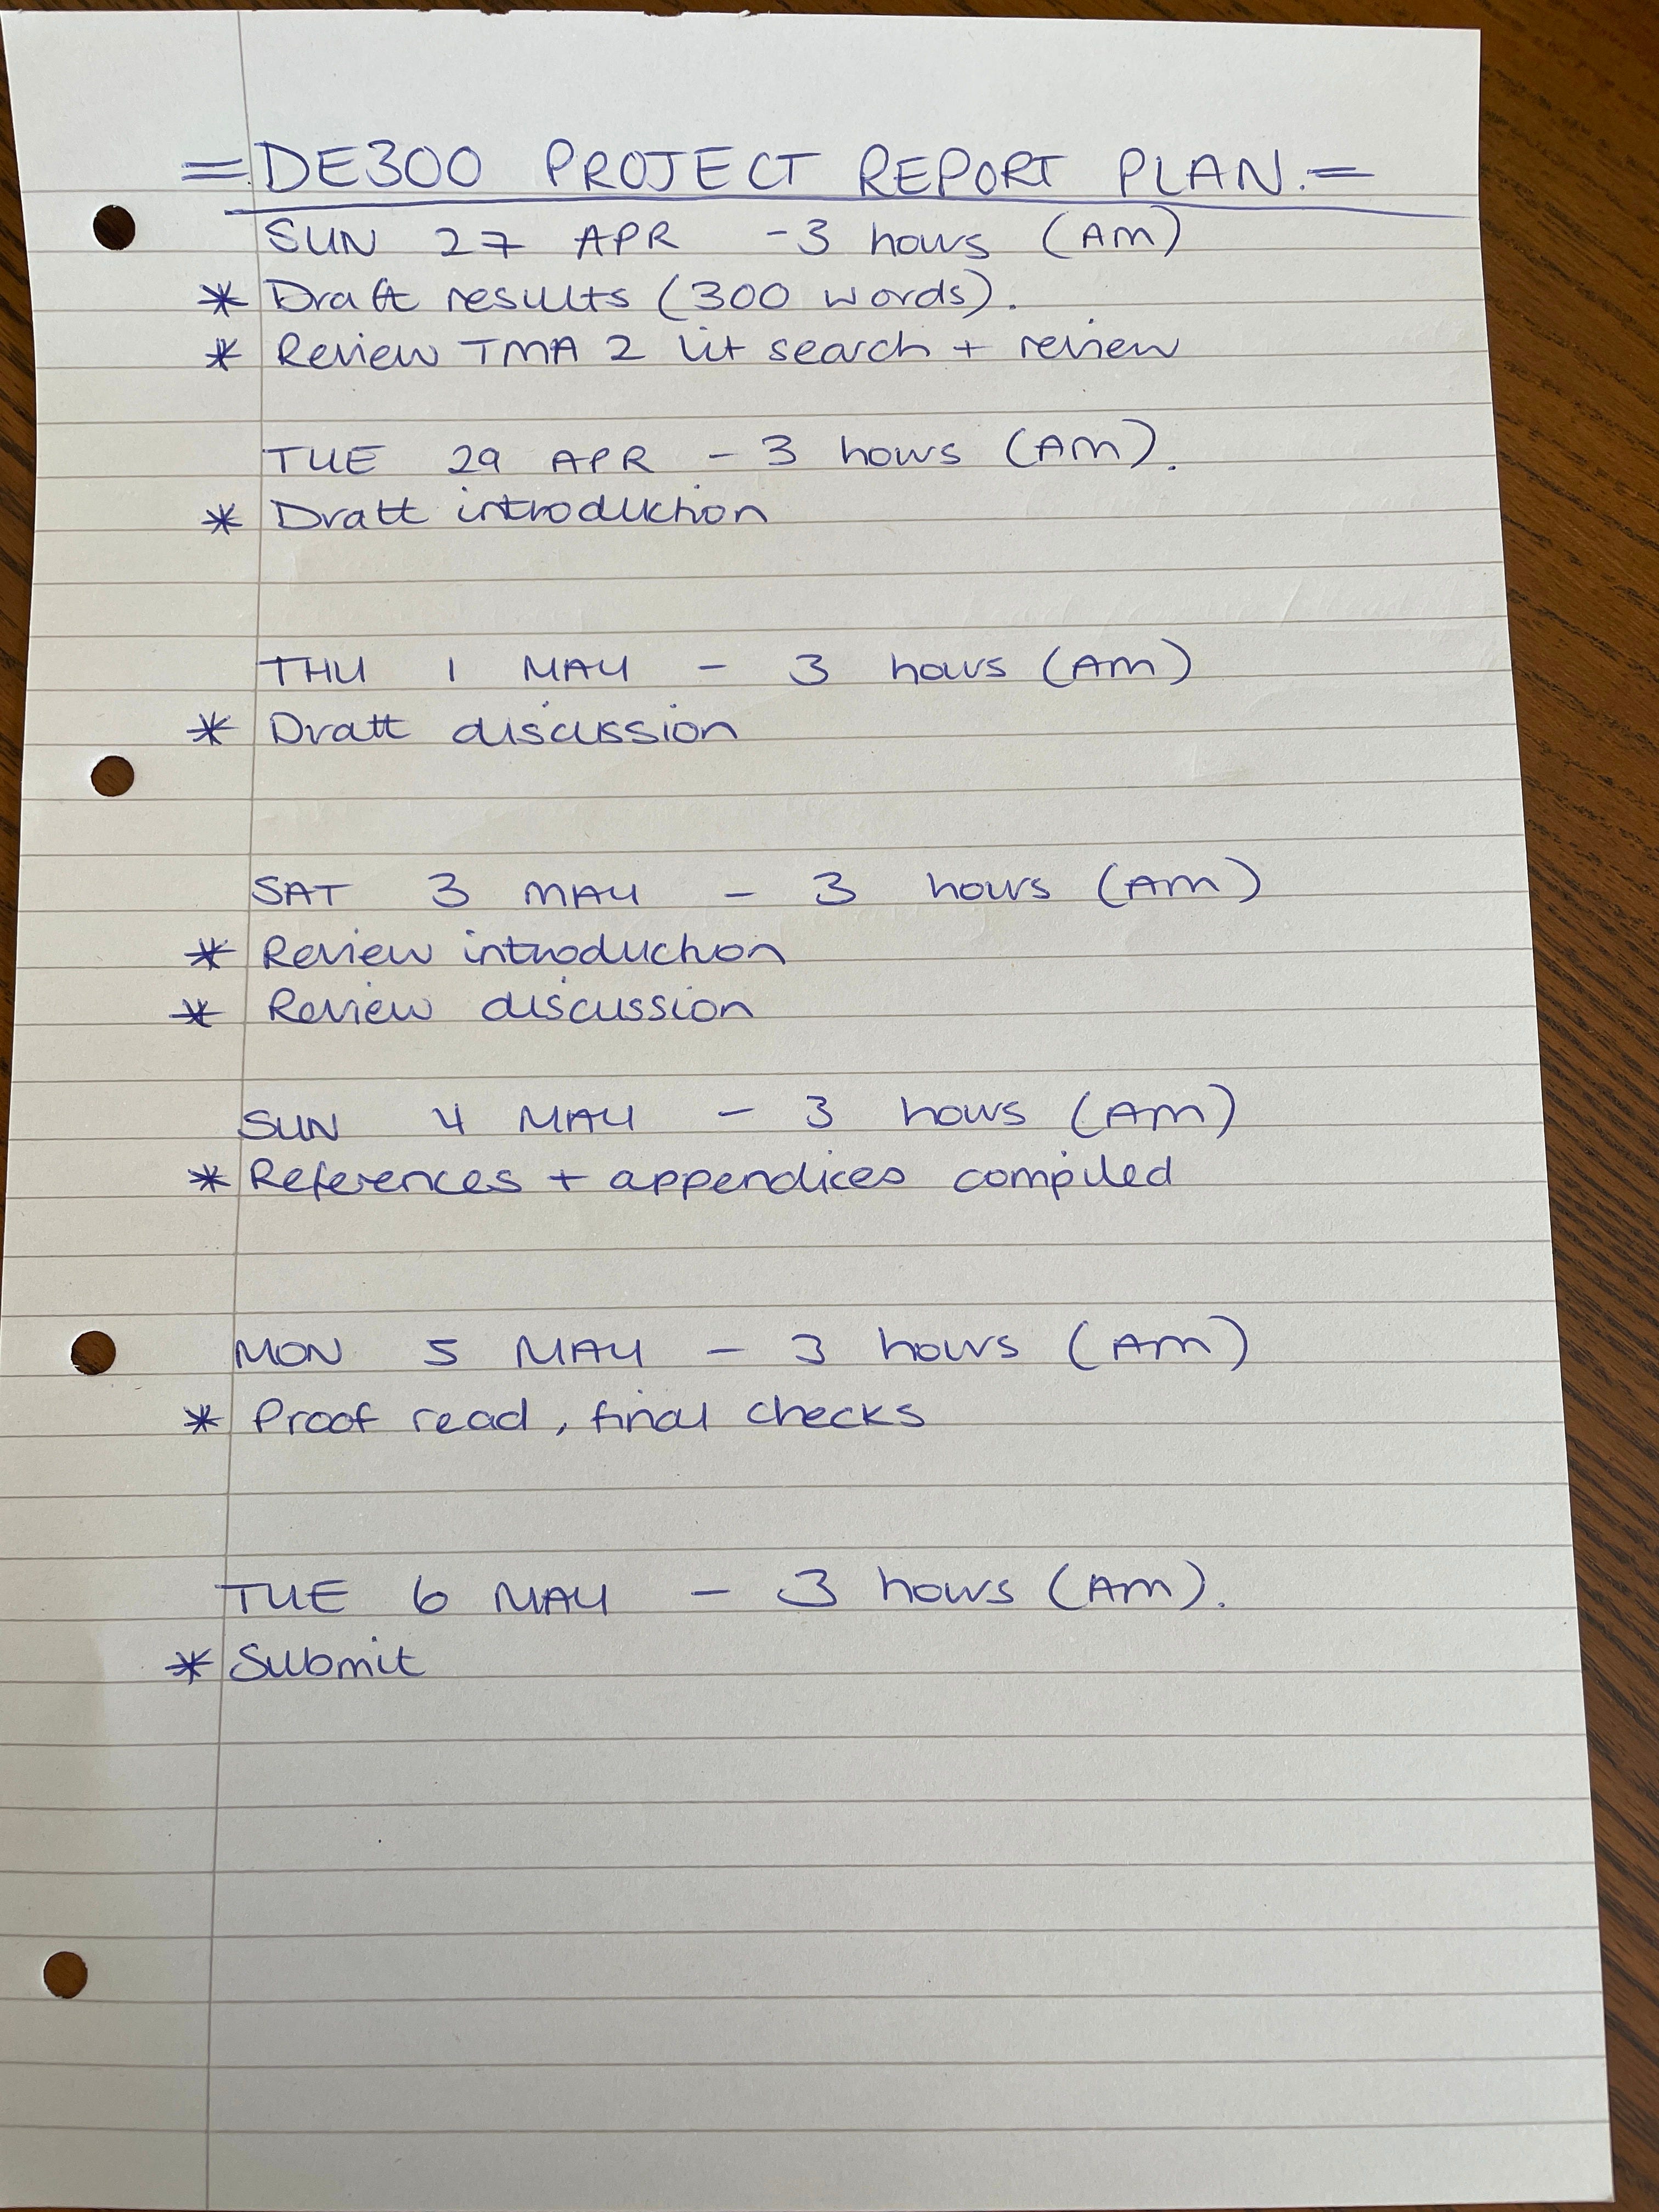 = DE300 PROJECT REPORT PLAN. =
SUN 27 APR - 3 hours (AM)
* Draft results (300 words).
* Review TMA 2 lit search + review
TUE 29 APR - 3 hours (AM).
* Draft introduction
THU 1 MAY - 3 hours (AM)
* Draft discussion
SAT 3 MAY - 3 hours (AM)
* Review introduction
* Review discussion
SUN 4 MAY - 3 hours (AM)
* References + appendices compiled
MON 5 MAY - 3 hours (AM)
* Proof read, final checks
TUE 6 MAY - 3 hours (AM).
* Submit